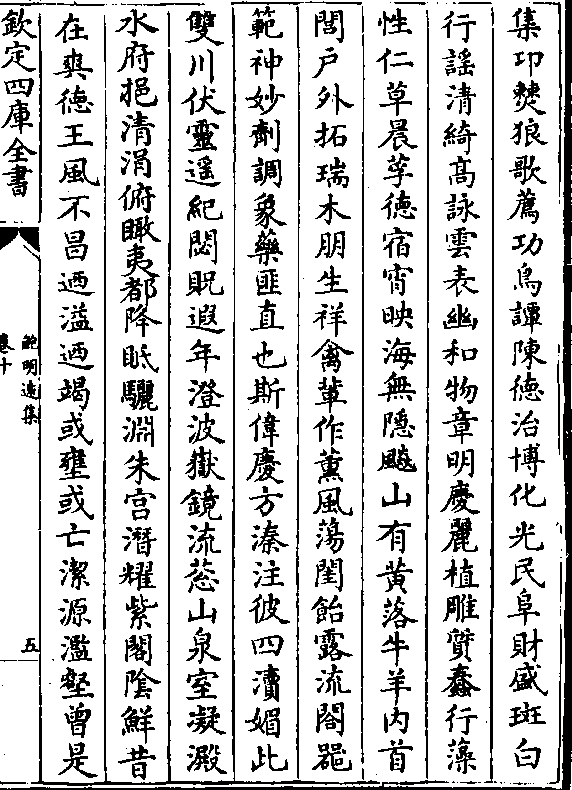 集卭㷼狼歌薦功鳥譚陳德治博化光民阜財盛斑白
行謡清綺髙詠雲表幽和物章明慶麗植雕質蠢行藻
性仁草晨莩徳宿宵映海無隱飈山有黄落牛羊内首
閭户外拓瑞木朋生祥禽輩作薰風蕩閨飴露流閤罷
範神妙劑調象藥匪直也斯偉慶方溱注彼四瀆媚此
雙川伏靈遥紀閟貺遐年澄波嶽鏡流葱山泉室凝澱
水府挹清涓俯瞰夷都降眂驪淵朱宫潛耀紫閣陰鮮昔
在爽徳王風不昌迺溢迺竭或壅或亡潔源濫壑曾是
欽定四庫全書
鮑明遠集
卷十
五